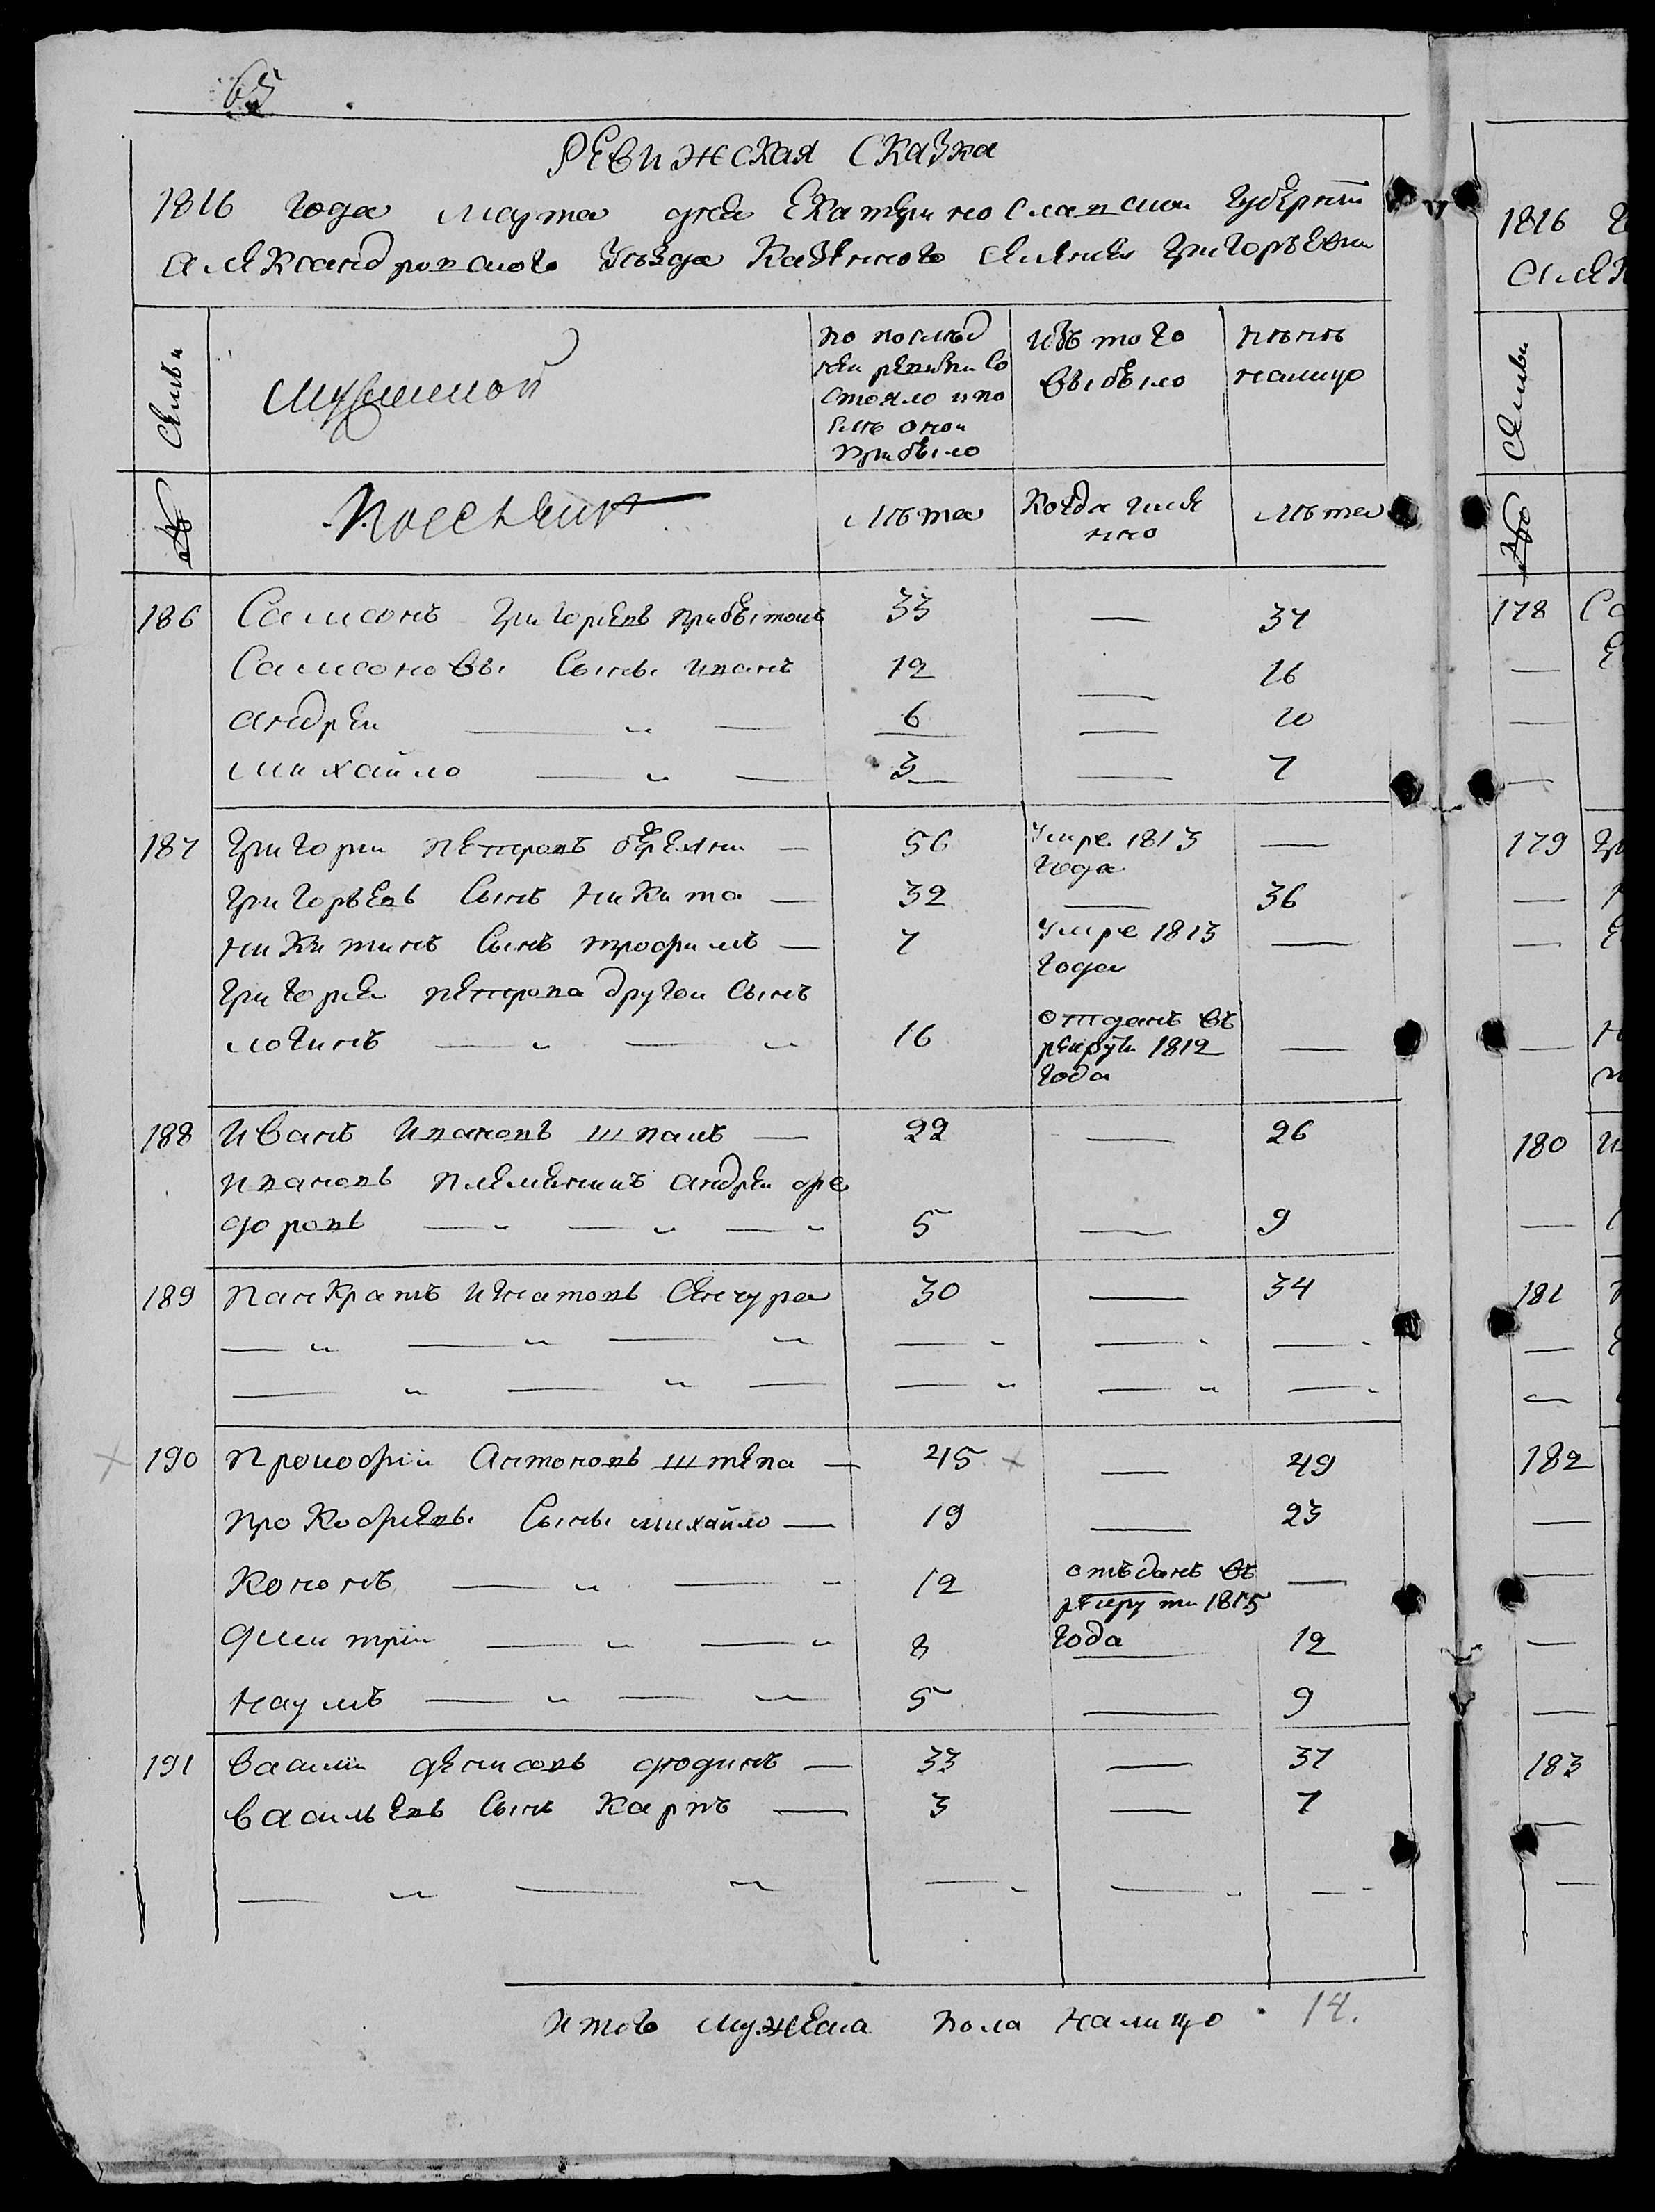 65
РЕВИЖСКАЯ СКАЗКА
1816 года марта дня Екатеринославской губернии
Александровского уезда казенного селения Григорьевки
Семьи
мужеский
по послед
ней ревизии со
стояло и по
сле оной
прибыло
изъ того
выбыло
нынѣ
налицо
№
лѣта
Когда имя
нно
лѣта
186 Самсонъ Григорьевъ 33 — 37
Самсоновы сыны Иванъ 12 — 16
андрей — „ — 6 — 10
михайло — „ — 3 — 7
187 Григорий Петровъ — 56 умре 1813 года —
Григорьевъ сынъ никита — 32 — 36
никитинъ сынъ трофимъ — 7 умре 1813 года —
Григорья петрова другой сынъ
логинъ — „ — „ 16 отданъ въ рекруты 1812 года —
188 Иванъ Ивановъ шпакъ — 22 — 26
Ивановъ племянникъ андрей фе
доровъ — „ — „ — „ 5 — 9
189 Панкратъ Игнатовъ Сенчура 30 — 34
190 Прокофій Антоновъ штепа — 45 — 49
прокофьевы сыны михайло — 19 — 23
Кононъ — „ — „ 12 отъданъ въ рекруты 1815 года —
дмитрій — „ — „ 8 — 12
наумъ — „ — „ 5 — 9
191 Василій денисовъ дюдинъ — 33 — 37
васильевъ сынъ карпъ — 3 — 7
итого мужеска пола налицо 14.
1816
алек
Семьи
№
178
179
180
181
182
183